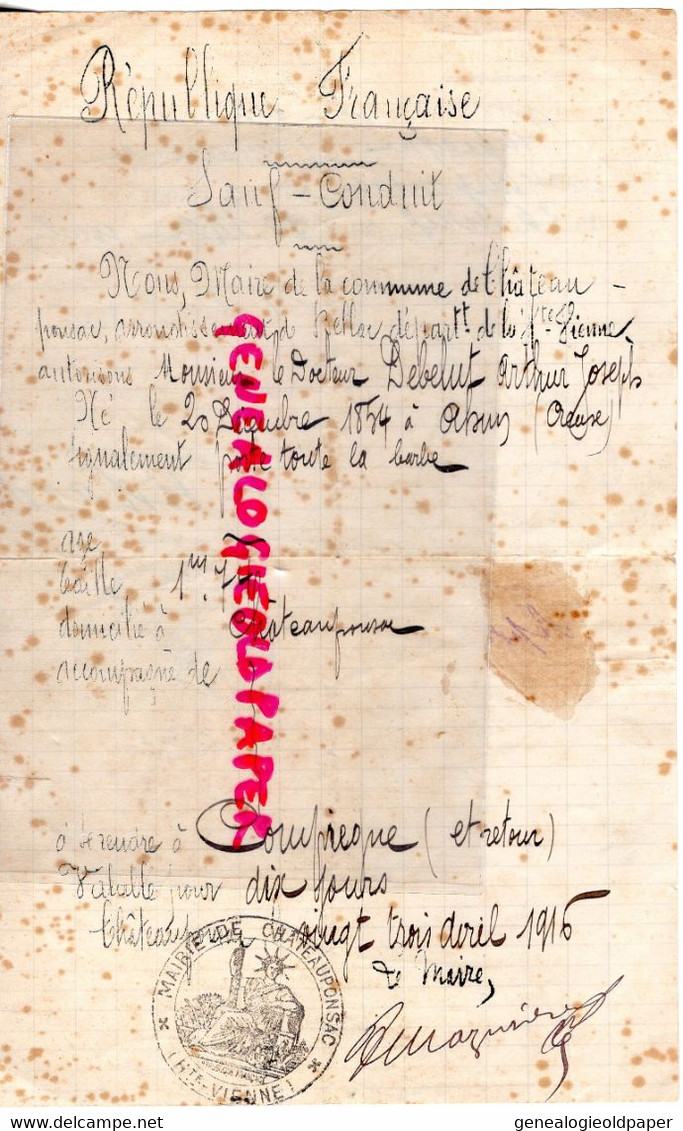 République Française
Sauf-Conduit
Nous, Maire de la commune de Château-
ponsac, arrondissement de Bellac départt. de la Hte-Vienne
autorisons Monsieur le Docteur Debelut Arthur Joseph
Né le 20 Décembre 1854 à Ahun (Creuse)
Signalement porte toute la barbe
age
taille 1m.7
domicilié à Châteauponsac
accompagné de
à se rendre à Compiegne (et retour)
Valable pour dix jours
Châteauponsac, vingt trois avril 1916
Le Maire,
MAIRIE DE CHATEAUPONSAC
(HTE VIENNE)
GENEALOGIEOLDPAPER
genealogieoldpaper